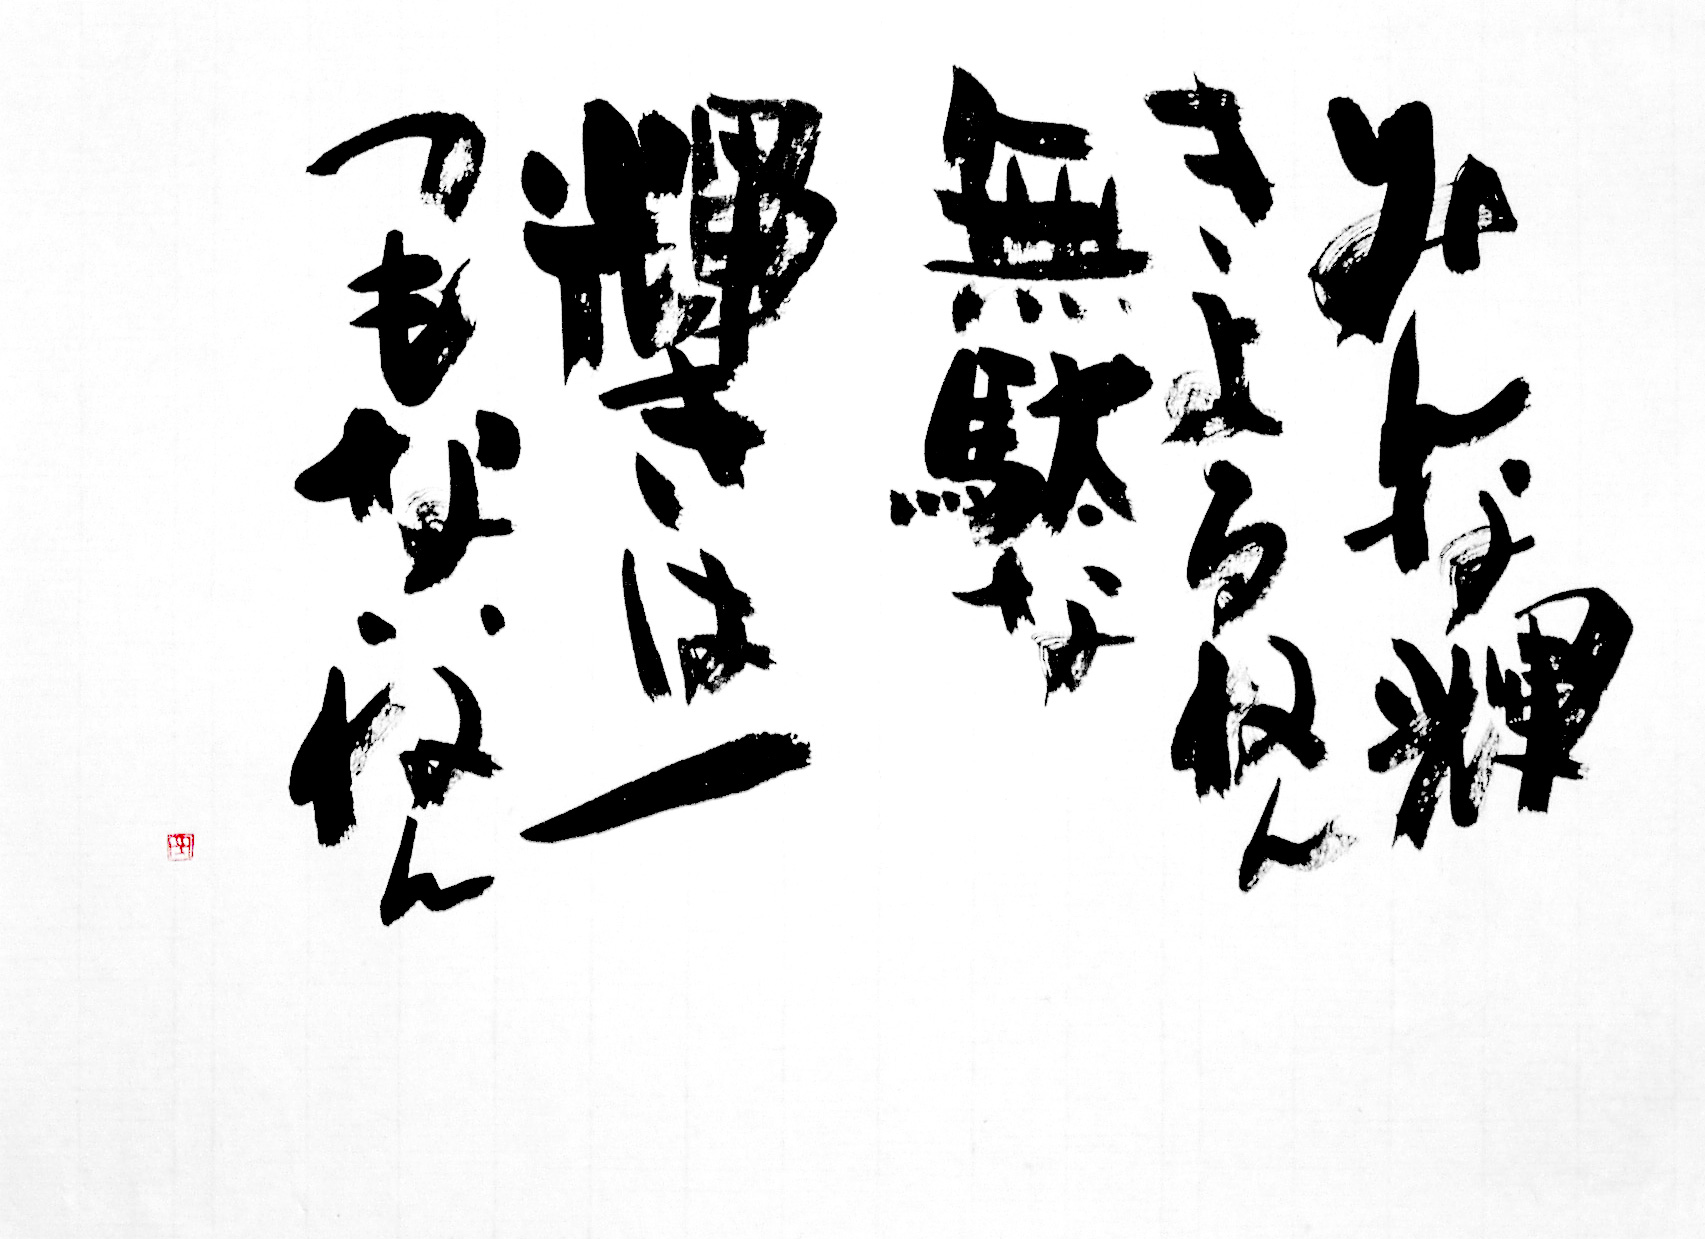 みんな輝
きよるねん
無駄な
輝きは一
つもないねん